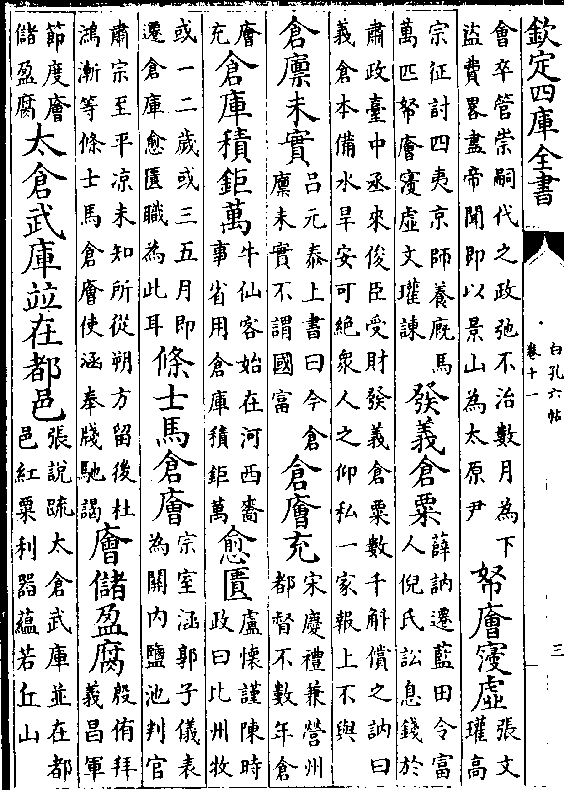 欽定四庫全書
白孔六帖
卷十一
三
會卒管崇嗣代之政弛不治數月為下
盜費畧盡帝聞即以景山為太原尹
帑廥寖虛
張文
瓘高
宗征討四夷京師養廐馬
萬匹帑廥寖虛文瓘諫
發義倉粟
薛訥遷藍田令富
人倪氏訟息錢於
肅政臺中丞來俊臣受財發義倉粟數千斛償之訥曰
義倉本備水旱安可絕衆人之仰私一家報上不與
倉廪未實
吕元泰上書曰今倉
廪未實不謂國富
倉廥充
宋慶禮兼營州
都督不數年倉
廥
充
倉庫積鉅萬
牛仙客始在河西嗇
事省用倉庫積鉅萬
愈匱
盧懷謹陳時
政曰比州牧
或一二歲或三五月即
遷倉庫愈匱職為此耳
條士馬倉廥
宗室涵郭子儀表
為關内鹽池判官
肅宗至平凉未知所從朔方留後杜
鴻漸等條士馬倉廥使涵奉牋馳謁
廥儲盈腐
殷侑拜
義昌軍
節度廥
儲盈腐
太倉武庫竝在都邑
張說疏太倉武庫並在都
邑紅粟利器蘊若丘山